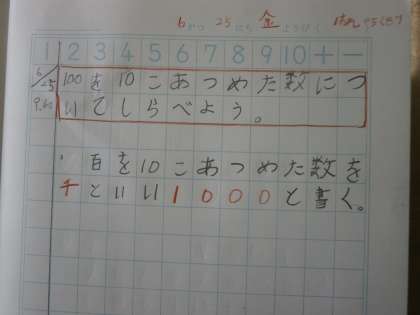 6がつ 25にち 金ようび
1 2 3 4 5 6 7 8 9 10 十 一
6/25 100を10こあつめた数につ
いてしらべよう。
百を10こあつめた数を
千といい1000と書く。